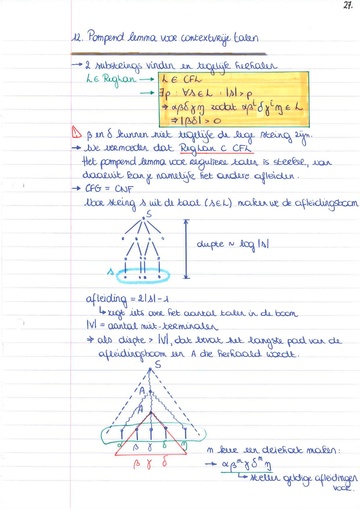 27.
12. Pompend lemma voor contextvrije talen
→ 2 substrings vinden en tegelijk herhalen
L ∈ RegLan → L ∈ CFL
→ ∃p : ∀s ∈ L : |s| > p
⇒ αβδγη zodat αβ^iδγ^iη ∈ L
⇒ |βδ| > 0
! β en δ kunnen niet tegelijk de lege string zijn.
→ We vermoeden dat RegLan ⊂ CFL
Het pompend lemma voor reguliere talen is sterker, van
daaruit kan je namelijk het andere afleiden.
→ CFG = CNF
Voor string s uit de taal (s∈L) maken we de afleidingsboom
S
diepte ~ log|s|
s
afleiding = 2|s|-1
↳ zegt iets over het aantal in de boom
|V| = aantal niet-terminalen
⇒ als diepte > |V|, dat bevat het langste pad van de
afleidingsboom een A die herhaald wordt.
S
A
A
α β γ δ η
β γ δ
m keer een driehoek maken:
→ αβ^mγδ^mη
↳ stellen geldige afleidingen
voor.